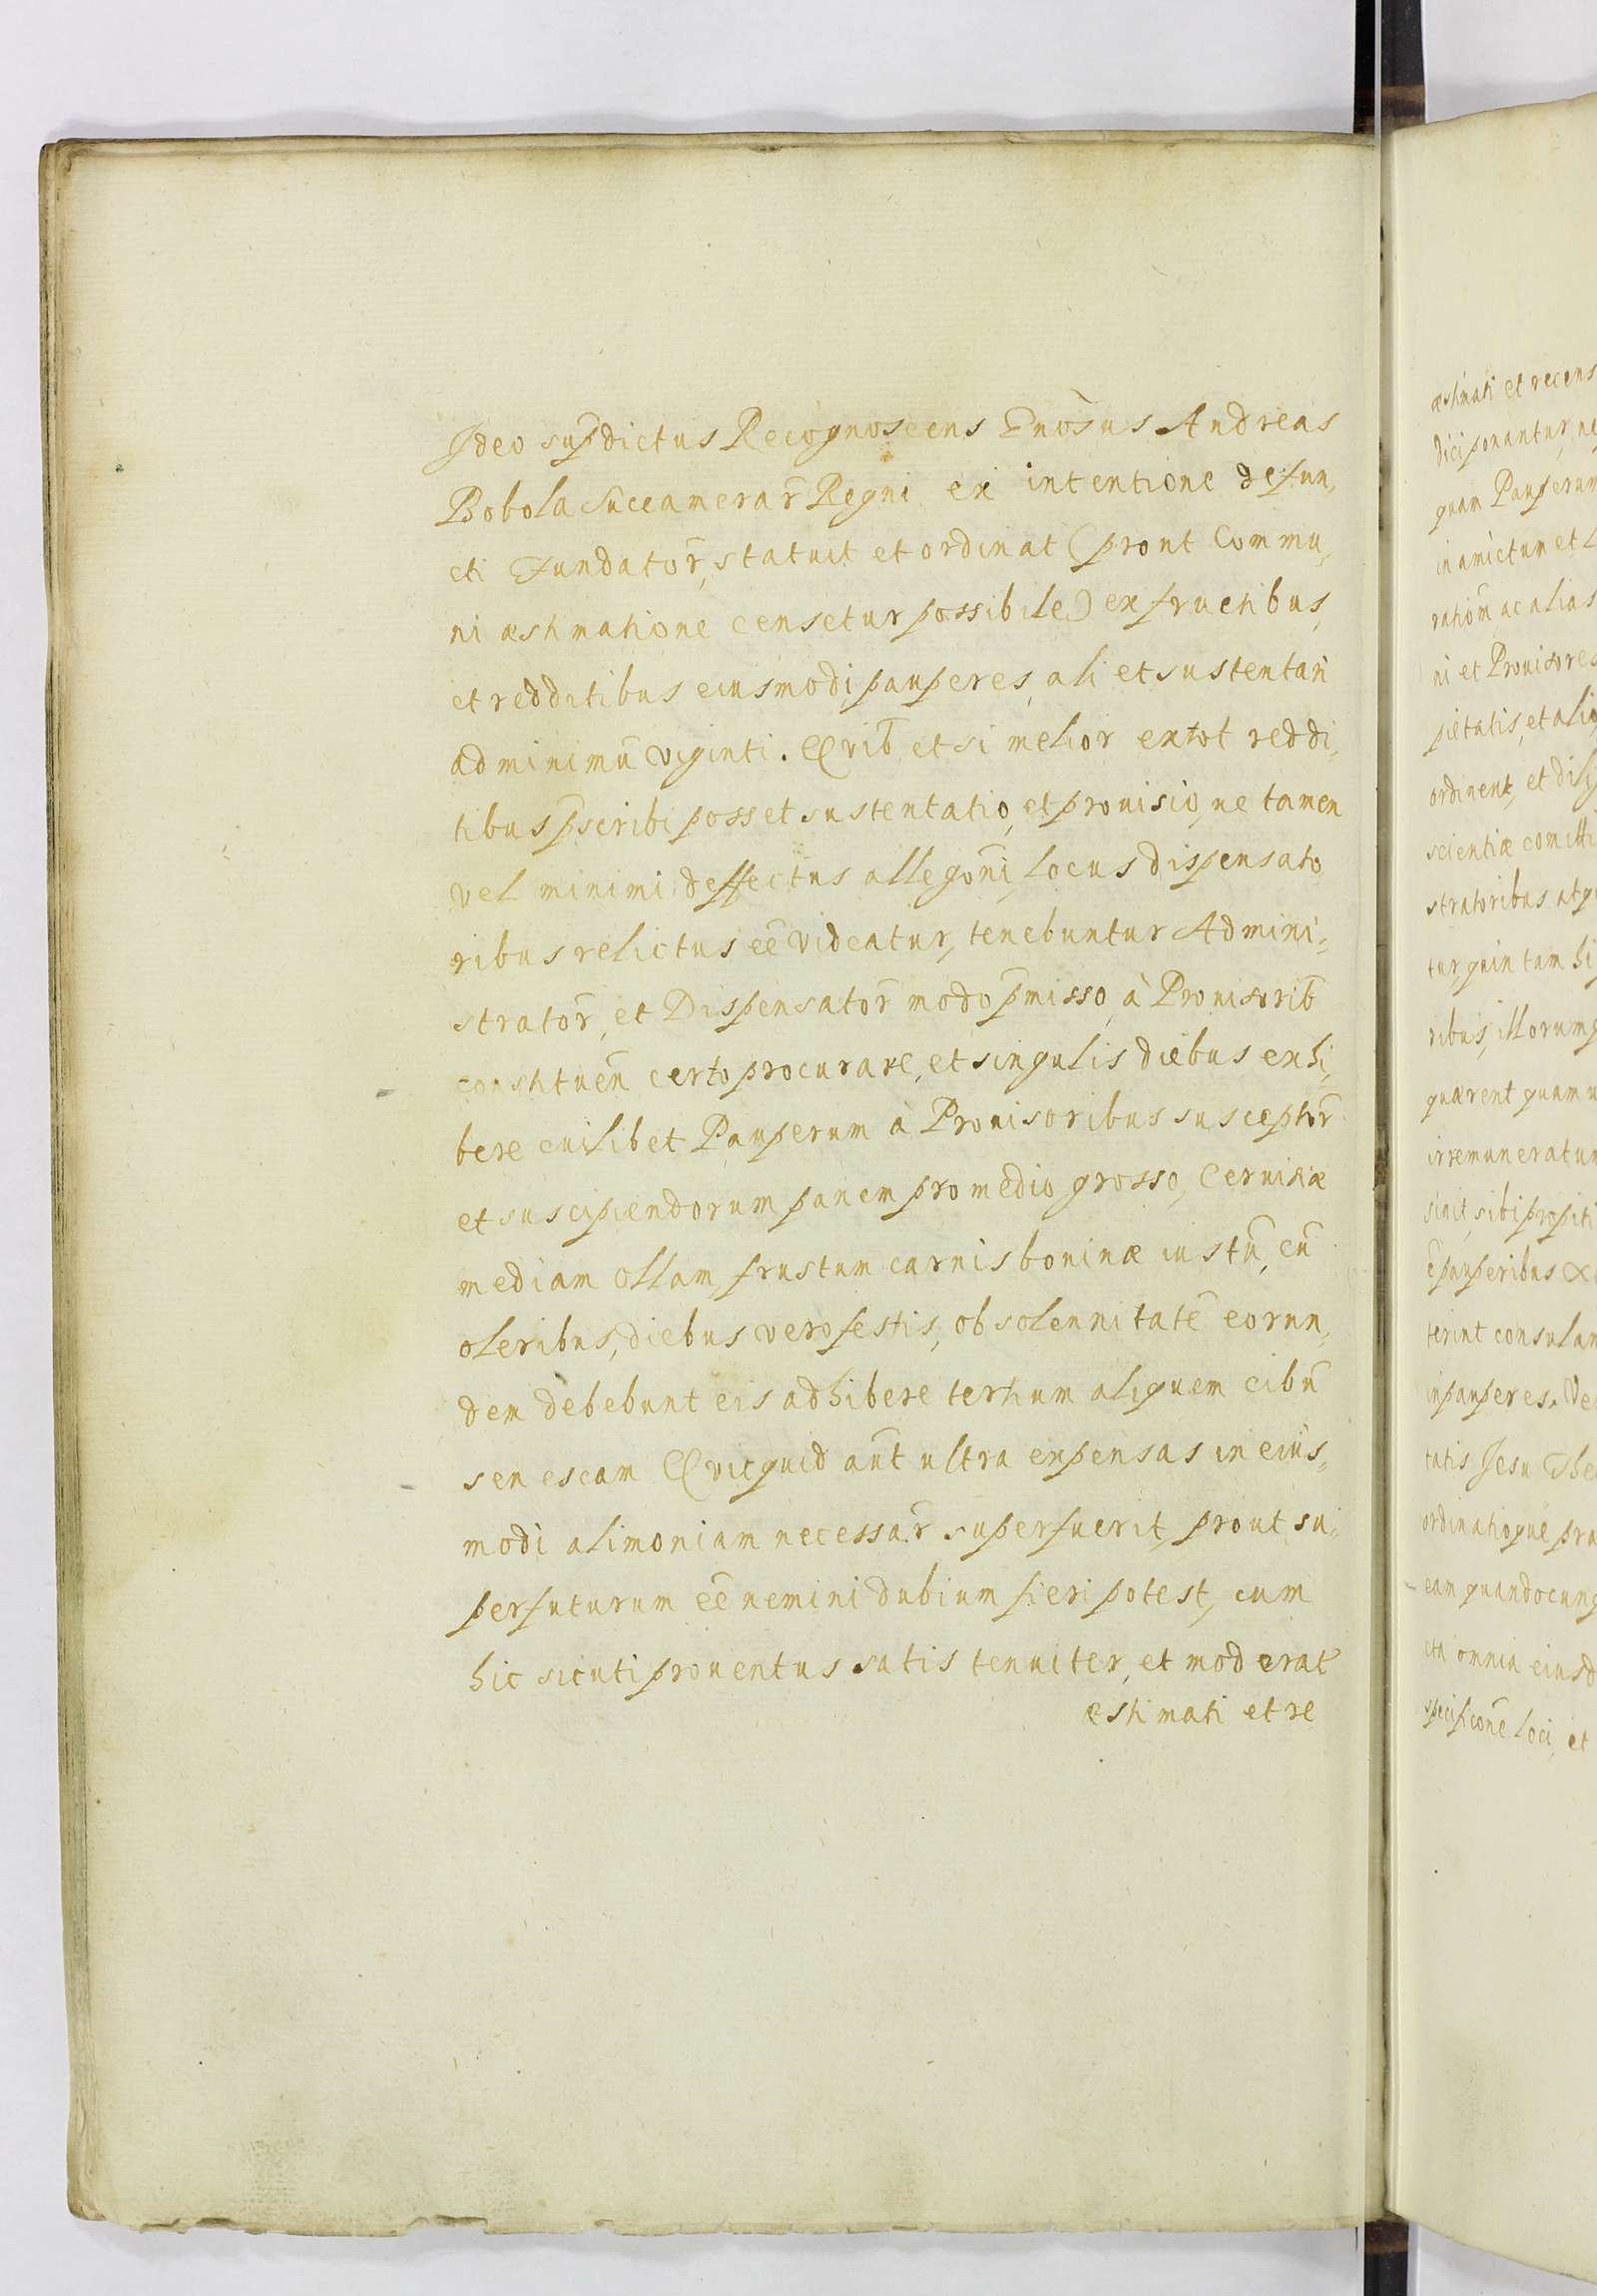 Ideo sup̄dictus Recognoscens Gnōsus Andreas
Bobola Succamerar̄ Regni ex intentione defun,
cti Fundator̄, statuit et ordinat (prout Commu,
ni æstimatione censetur possibile) ex fructibus,
et redditibus eiusmodi, pauperes, ali et sustentari
ad minimū viginti. Qvib̄ etsi melior ex tot reddi,
tibus p̄scribi posset sustentatio, et prouisio, ne tamen
vel minimi deffectus allegōni, locus dispensato
ribus relictus eē videatur, tenebuntur Admini=
strator̄, et Dispensator̄ modo p̄misso, à Prouisorib̄
constituen̄ certo procurare, et singulis diebus exhi,
bere cuilibet Pauperum à Prouisoribus susceptor̄
et suscipiendorum panem pro medio grosso, Ceruisiæ
mediam ollam, frustum carnis bouinæ iustū, cū
oleribus, diebus vero festis, ob solennitatē eorun,
dem debebunt eis adhibere tertium aliquem cibū
seu escam Qvicquid aūt ultra expensas in eius=
modi alimoniam necessar̄ superfuerit, prout su,
perfuturum eē nemini dubium fieri potest, cum
hic sicuti prouentus satis tenuiter, et moderate
æstimati et re
æstimati et recens
dici ponantur, ne
quam Pauperum
in amictum et
rationē ac alias
ni et Prouisores
pietatis, et alio
ordinent, et dili
scientiæ comitti
stratoribus atq
tur, quin tam hi
ribus, illorumq
quærent quam u
irremuneratum
sinit, sibi propiti
ē pauperibus
terint consulan
in pauperes. Ve
tatis Jesu The
ordinatioque pra
eam quandocunq
cta omnia eiusd
specificōne loci, et